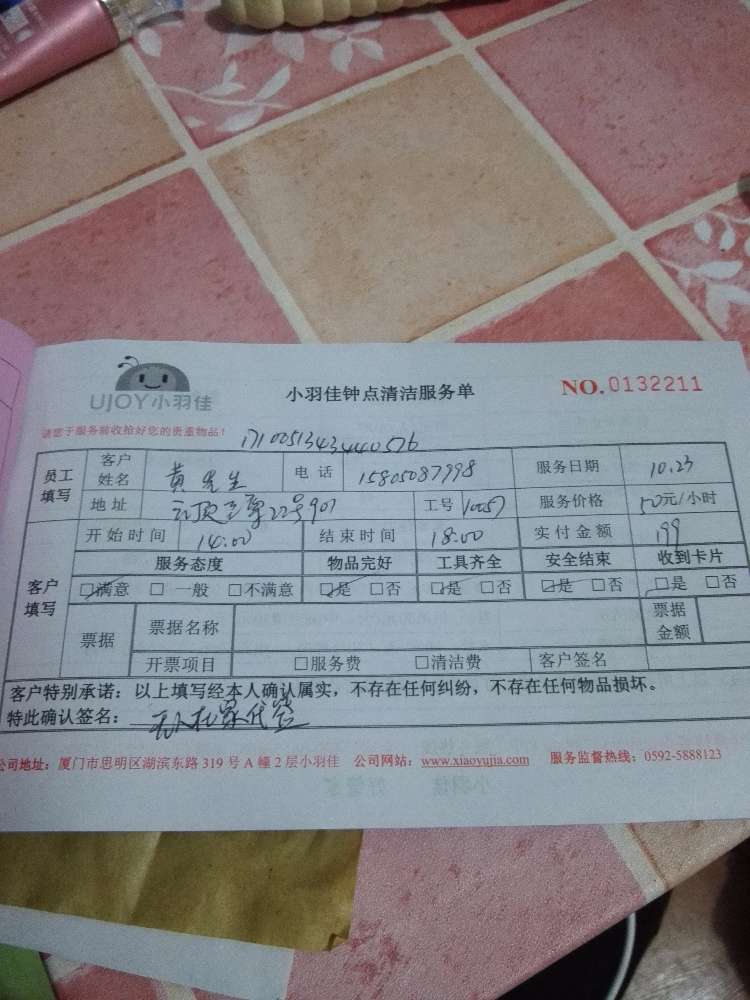 UJOY小羽佳
小羽佳钟点清洁服务单
NO.0132211
请您于服务前收拾好您的贵重物品！
员工填写 客户姓名 黄先生 电话 15805087998 服务日期 10.23
地址 22号901 工号 10057 服务价格 50元/小时
客户填写 开始时间 14:00 结束时间 18:00 实付金额 199
服务态度 物品完好 工具齐全 安全结束 收到卡片
□满意 □一般 □不满意 □是 □否 □是 □否 □是 □否 □是 □否
票据 票据名称 票据金额
开票项目 □服务费 □清洁费 客户签名
客户特别承诺：以上填写经本人确认属实，不存在任何纠纷，不存在任何物品损坏。
特此确认签名：无人在家代签
公司地址：厦门市思明区湖滨东路319号A幢2层小羽佳 公司网站：www.xiaoyujia.com 服务监督热线：0592-5888123